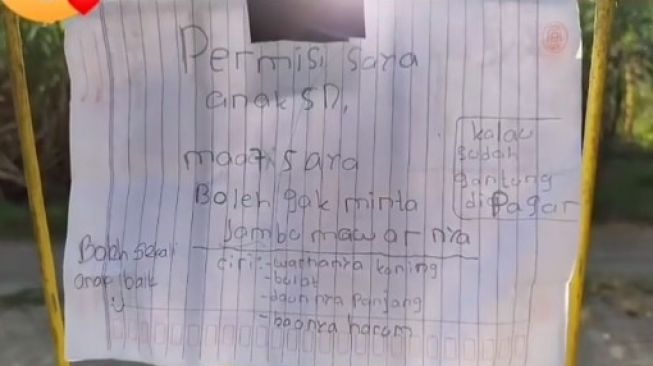 Permisi saya
anak SD,
maaf saya
Boleh gak minta
Jambu mawar nya
kalau
sudah
gantung
di Pagar
Boleh sekali
anak baik
:)
ciri:-warnanya kuning
-bulat
-daunnya Panjang
-baonya harum